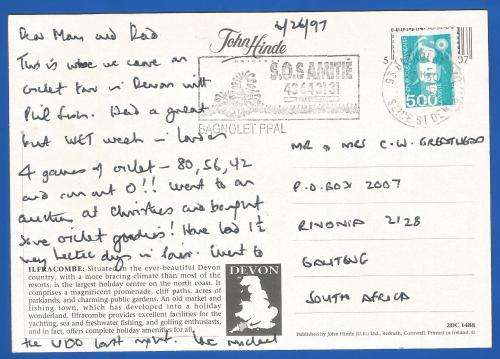 4/26/97
Dear Mom and Dad
This is where we came on
cricket tour in Devon with
Phil Had a great
but WET week in London
4 games of cricket – 80, 56, 42
and run out 0!! Went to an
auction at Christies and bought
some cricket goodies! Have had 1½
very hectic days in Paris. Went to
the last night.
John Hinde
S.O.S AMITIÉ
43 64 31 31
BAGNOLET PPAL
5,00
MR & MRS C.W. GREATHEAD
P.O. BOX 2007
RIVONIA 2128
GAUTENG
SOUTH AFRICA
ILFRACOMBE: Situated in the ever-beautiful Devon
country, with a more bracing climate than most of
resorts, is the largest holiday centre on the north coast. It
comprises a magnificent promenade, cliff paths, acres of
parklands, and charming public gardens. An old market and
fishing town, which has developed into a holiday
wonderland. Ilfracombe provides excellent facilities for the
yachting, sea and freshwater fishing, and golfing enthusiasts,
and in fact, offers complete holiday amenities for all.
DEVON
2DC 1488
Published by John Hinde (U.K.) Ltd., Redruth, Cornwall. Printed in Ireland. ©